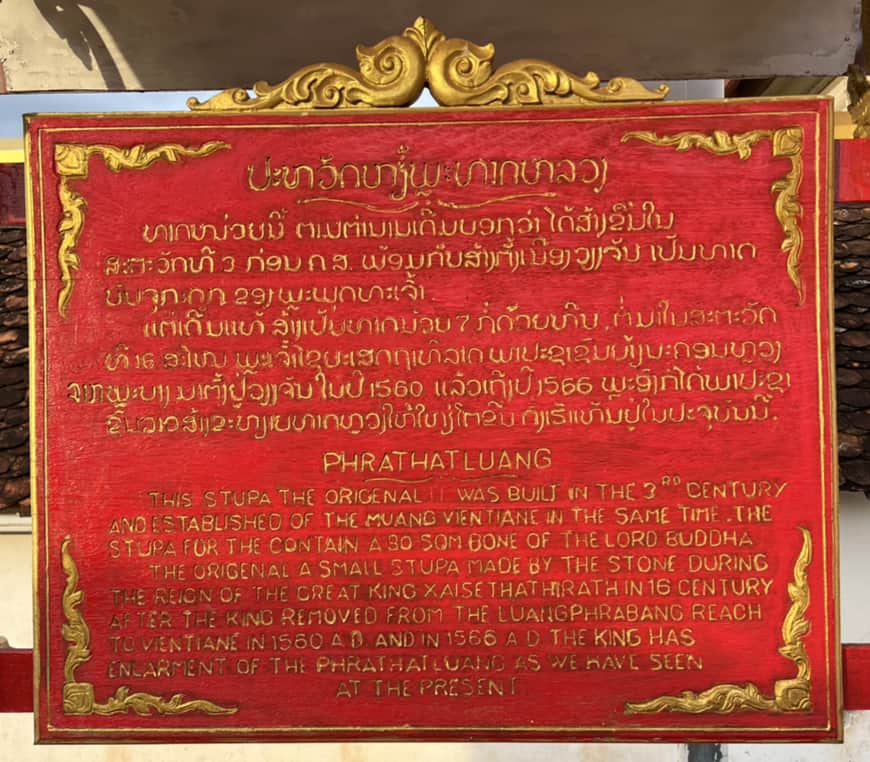 ປະຫວັດຫຍໍ້ພຣະທາດຫລວງ
ທາດຫນ່ວຍນີ້ ຕາມຕຳນານເດີມບອກວ່າ ໄດ້ສ້າງຂຶ້ນໃນ
ສະຕະວັດທີ 3 ກ່ອນ ຄ.ສ. ພ້ອມກັບສ້າງຕັ້ງເມືອງວຽງຈັນ ເປັນທາດ
ຂອງ ພຣະພຸດທະເຈົ້າ.
ແຕ່ເດີມແທ້ ສ້າງເປັນທາດນ່ວຍ ກໍ່ດ້ວຍຫີນ, ໃນສະຕະວັດ
ທີ 16 ນະຄອນຫຼວງ
ວຽງຈັນ ໃນປີ 1560 ແລ້ວເຖິງປີ 1566
ທາດຫຼວງໃຫ້ໃຫຍ່ໂຕຂຶ້ນ ດັ່ງເຮົາເຫັນຢູ່ໃນປະຈຸບັນນີ້.
PHRATHATLUANG
THIS STUPA THE ORIGENAL WAS BUILT IN THE 3RD CENTURY
AND ESTABLISHED OF THE MUANG VIENTIANE IN THE SAME TIME. THE
STUPA FOR THE CONTAIN A BO SOM BONE OF THE LORD BUDDHA
THE ORIGENAL A SMALL STUPA MADE BY THE STONE DURING
THE REIGN OF THE GREAT KING XAISETHATHIRATH IN 16 CENTURY
AFTER THE KING REMOVED FROM THE LUANGPHRABANG REACH
TO VIENTIANE IN 1560 A.D. AND IN 1566 A.D THE KING HAS
ENLARMENT OF THE PHRATHATLUANG AS WE HAVE SEEN
AT THE PRESENT